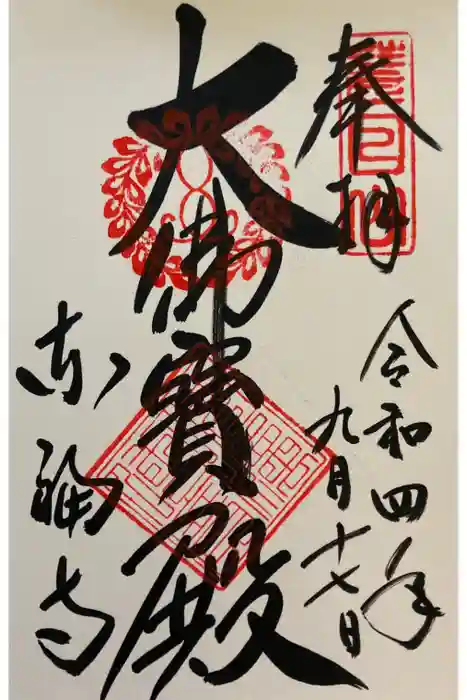 奉拝
令和四年
九月十七日
大佛寶殿
東福寺